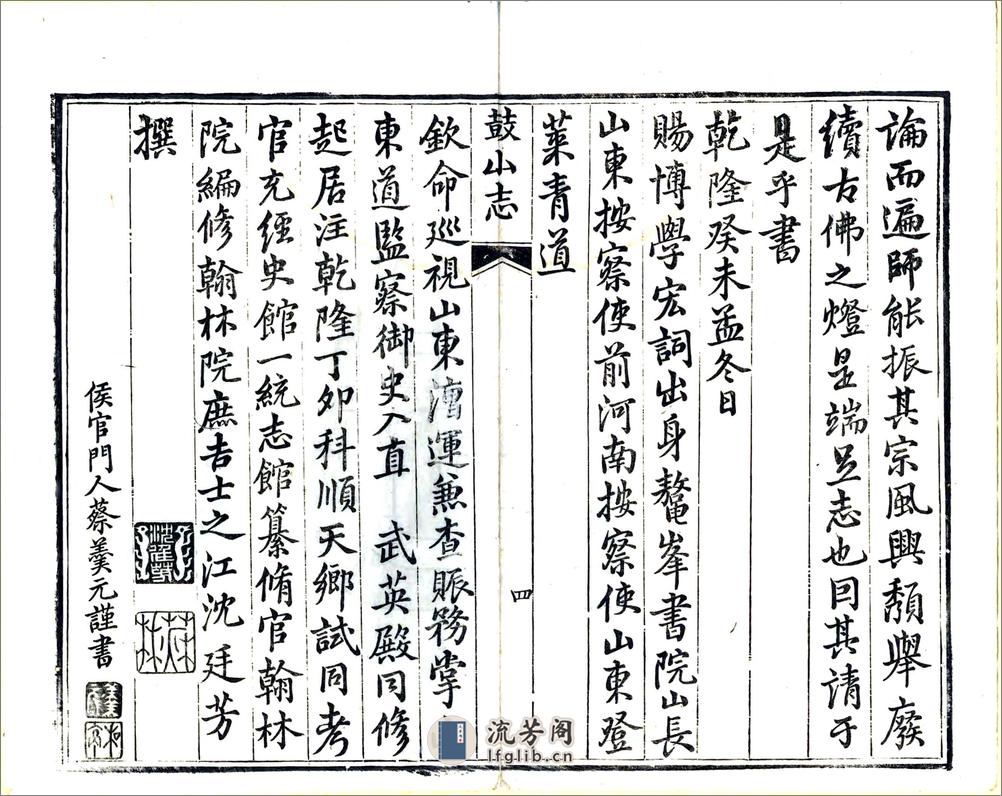 論而遍師能振其宗風興頽舉廢
續古佛之燈是端旦志也囙其請于
是乎書
乾隆癸未孟冬日
賜博學宏詞出身鰲峯書院山長
山東按察使前河南按察使山東登
萊青道
鼓山志
四
欽命巡視山東漕運兼查賑務掌
東道監察御史入直 武英殿同修
起居注乾隆丁卯科順天鄉試同考
官充經史館一統志館纂脩官翰林
院編修翰林院庶吉士之江沈廷芳
撰
侯官門人蔡羹元謹書
流芳阁
lfglib.cn